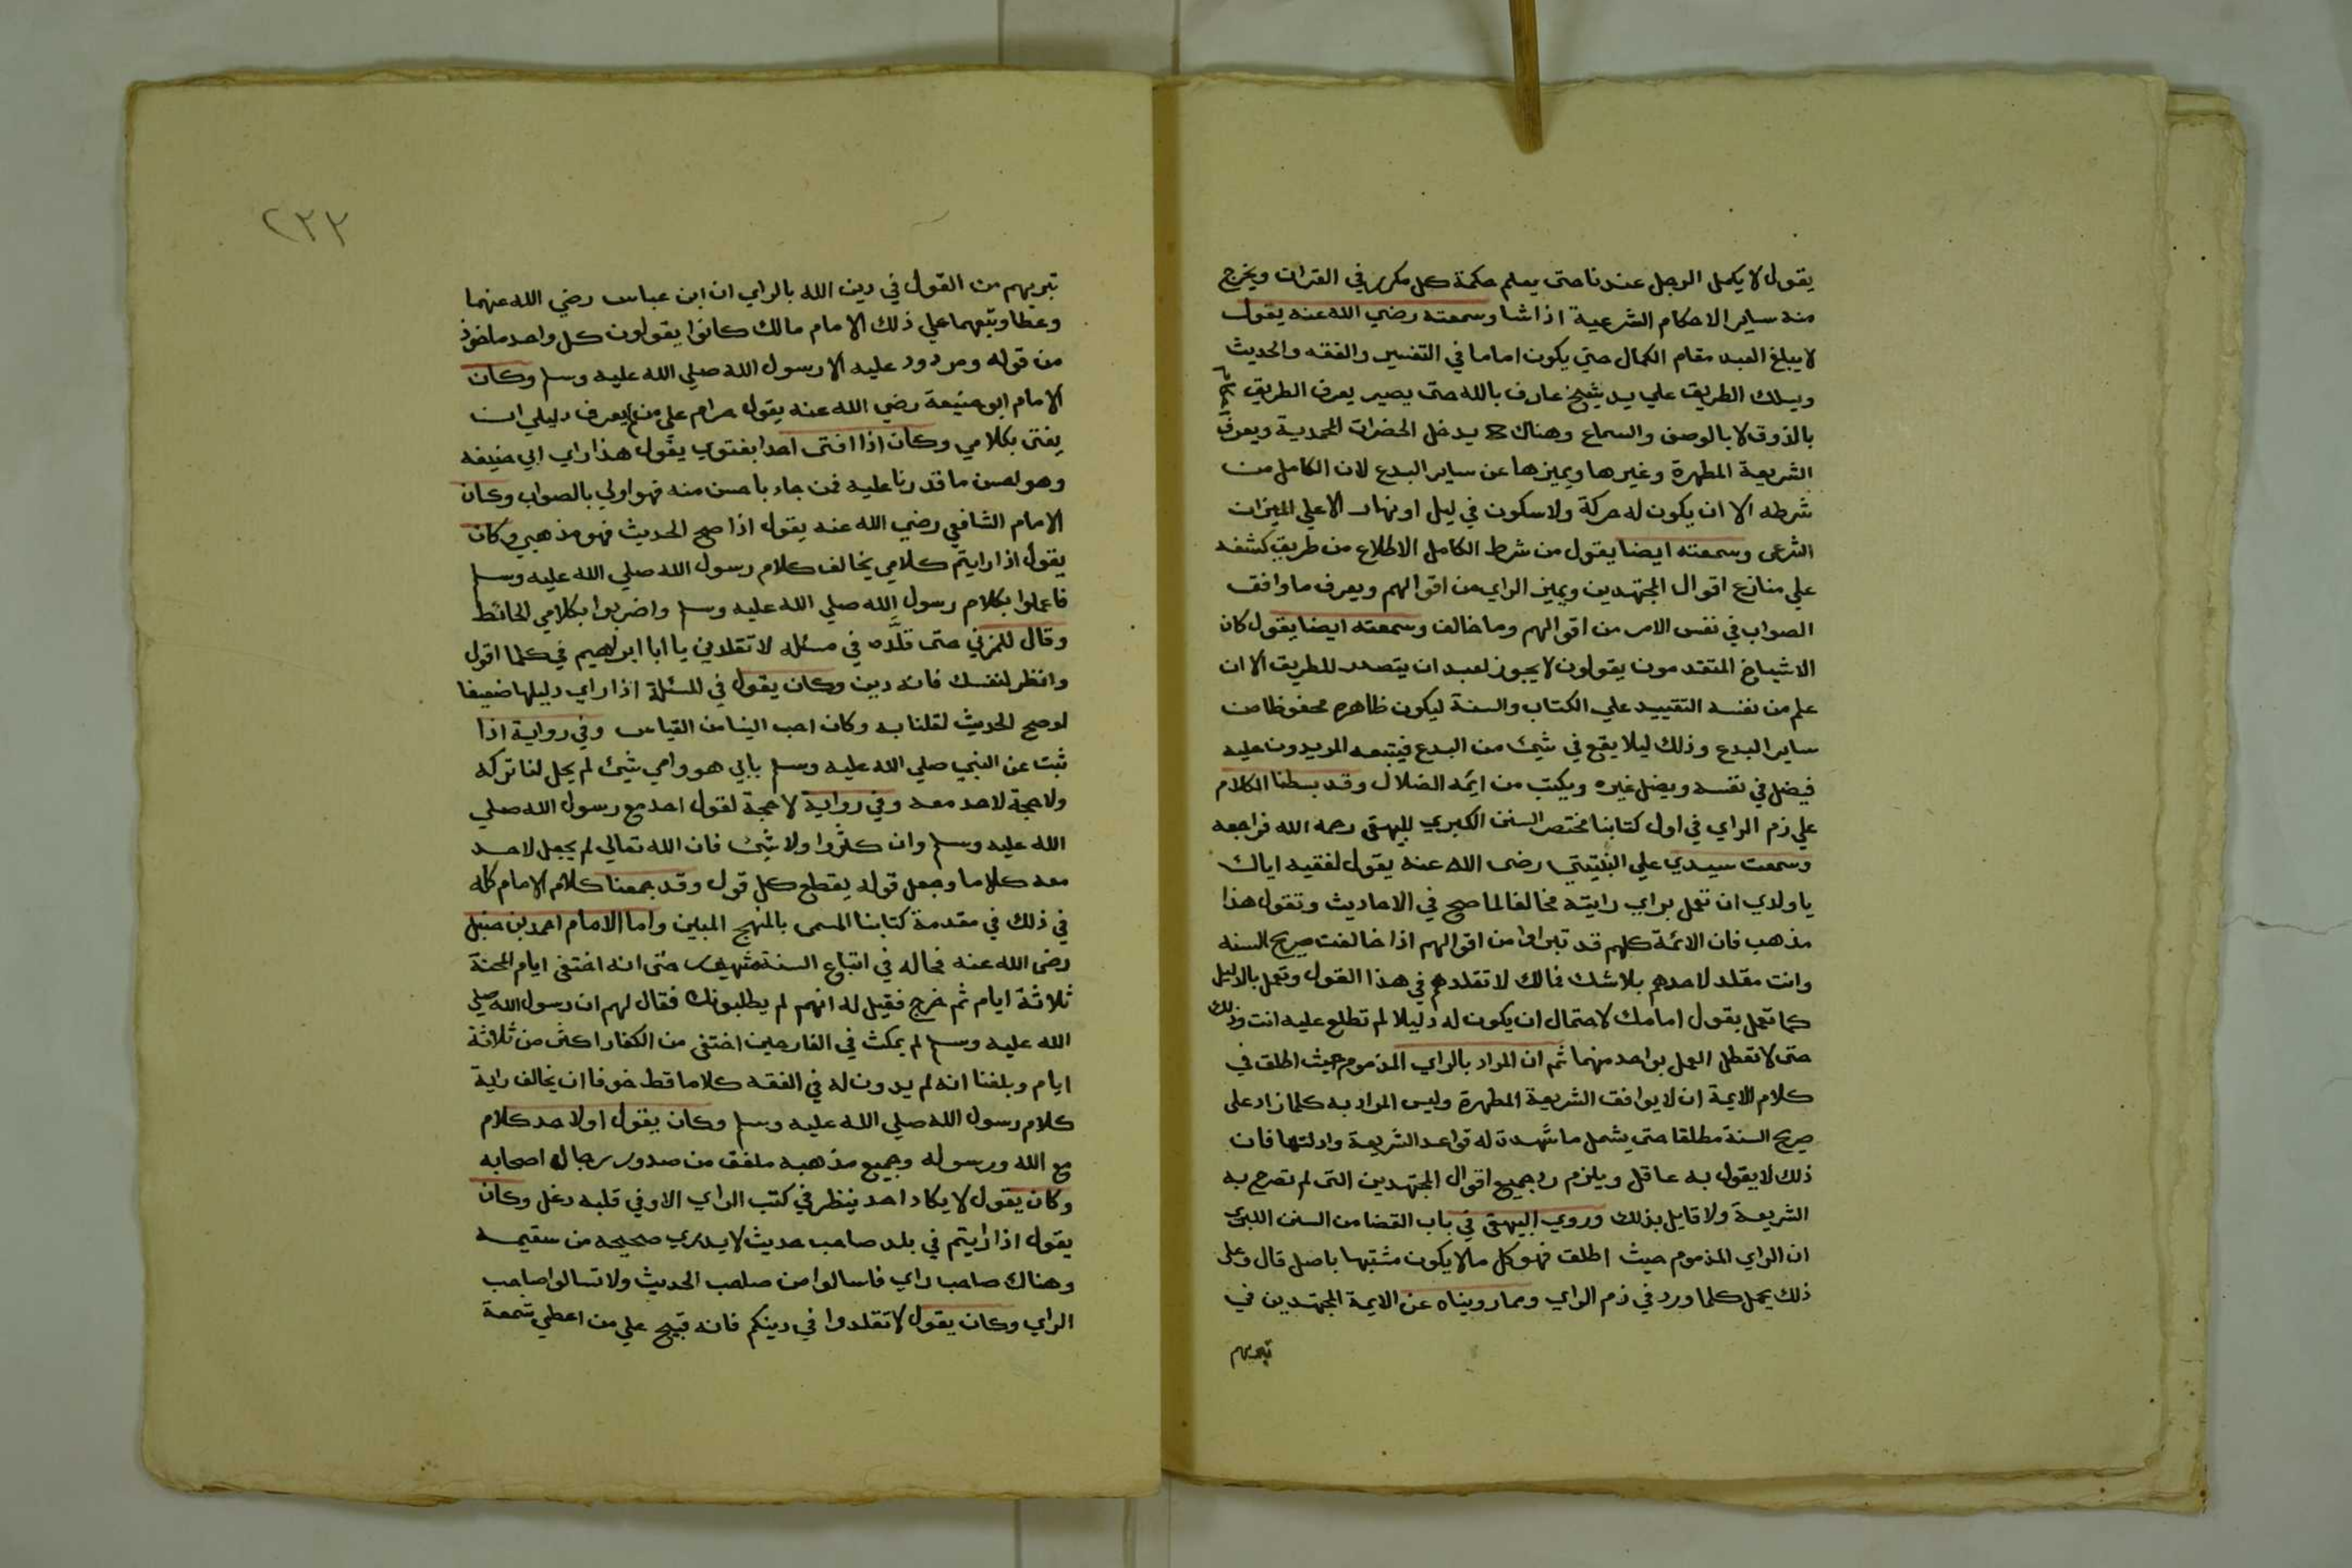 يقول لا يكمل الرجل عندنا حتى يعلم حكمة كل مكرر في القران ويخرج
منه ساير الاحكام الشرعية اذا شا وسمعته رضي الله عنه يقول
لا يبلغ العبد مقام الكمال حتي يكون اماما في التفسير والفقه والحديث
ويسلك الطريق علي يد شيخ عارف بالله حتى يصير يعرف الطريق
بالذوق لا بالوصف والسماع وهناك يدخل الحضرات المحمدية ويعرف
الشريعة المطهرة وغيرها ويميزها عن ساير البدع لان الكامل من
شرطه الا ان يكون له حركة ولا سكون في ليل او نهار الا علي الميزان
الشرعى وسمعته ايضا يقول من شرط الكامل الاطلاع من طريق كشفه
علي منازع اقوال المجتهدين ويميز الراي من اقوالهم ويعرف ما وافق
الصواب في نفس الامر من اقوالهم وما خالف وسمعته ايضا يقول كان
الاشياخ المتقدمون يقولون لا يجوز لعبد ان يتصدر للطريق الا ان
علم من نفسه التقييد علي الكتاب والسنة ليكون ظاهره محفوظا من
ساير البدع وذلك ليلا يقع في شيئ من البدع فيتبعه المريدون عليه
فيضل في نفسه ويضل غيره ويكتب من ايمة الضلال وقد بسطنا الكلام
علي ذم الراي في اول كتابنا مختصر السنن الكبري للبيهقي رحمه الله فراجعه
وسمعت سيدي علي النبتيتي رضى الله عنه يقول لفقيه اياك
يا ولدي ان تعمل براي رايته مخالفا لما صح في الاحاديث وتقول هذا
مذهب فان الائمة كلهم قد تبراوا من اقوالهم اذا خالفت صريح السنه
وانت مقلد لاحدهم بلا شك فمالك لا تقلدهم في هذا القول وتعمل بالدليل
كما تعمل بقول امامك لاحتمال ان يكون له دليلا لم تطلع عليه انت وذلك
حتى لا تعطل العمل بواحد منهما ثم ان المراد بالراي المذموم حيث اطلق في
كلام الايمة ان لا يوافق الشريعة المطهرة وليس المراد به كلما زاد على
صريح السنة مطلقا حتي يشمل ما شهدت له قواعد الشريعة وادلتها فان
ذلك لا يقول به عاقل ويلزم رد جميع اقوال المجتهدين التى لم تصرح به
الشريعة ولا قايل بذلك وروي البيهقى في باب القضا من السنن الكبرى
ان الراي المذموم حيث اطلق فهو كل ما لا يكون مشتبها باصل قال وعلى
ذلك يحمل كلما ورد في ذم الراي ومما رويناه عن الايمة المجتهدين في
تبريهم
٢٣٢
تبريهم من القول في دين الله بالراي ان ابن عباس رضي الله عنهما
وعطا وتبعهما علي ذلك الامام مالك كانوا يقولون كل واحد ماخوذ
من قوله ومردود عليه الا رسول الله صلي الله عليه وسلم وكان
الامام ابو حنيفة رضي الله عنه يقول حرام علي من لم يعرف دليلي ان
يفتى بكلامي وكان اذا افتى احدا بفتوي يقول هذا راي ابي حنيفه
وهو احسن ما قدرنا عليه فمن جاء باحسن منه فهو اولي بالصواب وكان
الامام الشافعي رضي الله عنه يقول اذا صح الحديث فهو مذهبي وكان
يقول اذا رايتم كلامي يخالف كلام رسول الله صلي الله عليه وسلم
فاعملوا بكلام رسول الله صلي الله عليه وسلم واضربوا بكلامي الحائط
وقال للمزني حتى قلده في مسئله لا تقلدني يا ابا ابراهيم في كلما اقول
وانظر لنفسك فانه دين وكان يقول في المسئلة اذا راي دليلها ضعيفا
لو صح الحديث لقلنا به وكان احب الينا من القياس وفي رواية اذا
ثبت عن النبي صلي الله عليه وسلم بابي هو وامي شيئ لم يحل لنا تركه
ولا حجة لاحد معه وفي رواية لا حجة لقول احد مع رسول الله صلي
الله عليه وسلم وان كثروا ولا شيئ فان الله تعالي لم يجعل لاحد
معه كلاما وجعل قوله يقطع كل قول وقد جمعنا كلام الامام كله
في ذلك في مقدمة كتابنا المسمى بالمنهج المبين واما الامام احمد بن حنبل
رضى الله عنه فحاله في اتباع السنة مشهور حتى انه اختفى ايام المحنة
ثلاثة ايام ثم خرج فقيل له انهم لم يطلبونك فقال لهم ان رسول الله صلي
الله عليه وسلم لم يمكث في الغار حين اختفى من الكفار اكثر من ثلاثة
ايام وبلغنا انه لم يدون له في الفقه كلاما قط خوفا ان يخالف راية
كلام رسول الله صلي الله عليه وسلم وكان يقول او لاحد كلام
مع الله ورسوله وجميع مذهبه ملفق من صدور رجال اصحابه
وكان يقول لا يكاد احد ينظر في كتب الراي الا وفي قلبه دغل وكان
يقول اذا رايتم في بلد صاحب حديث لا يدري صحيحه من سقيمه
وهناك صاحب راي فاسالوا من صاحب الحديث ولا تسالوا صاحب
الراي وكان يقول لا تقلدوا في دينكم فانه قبيح علي من اعطي شمعة